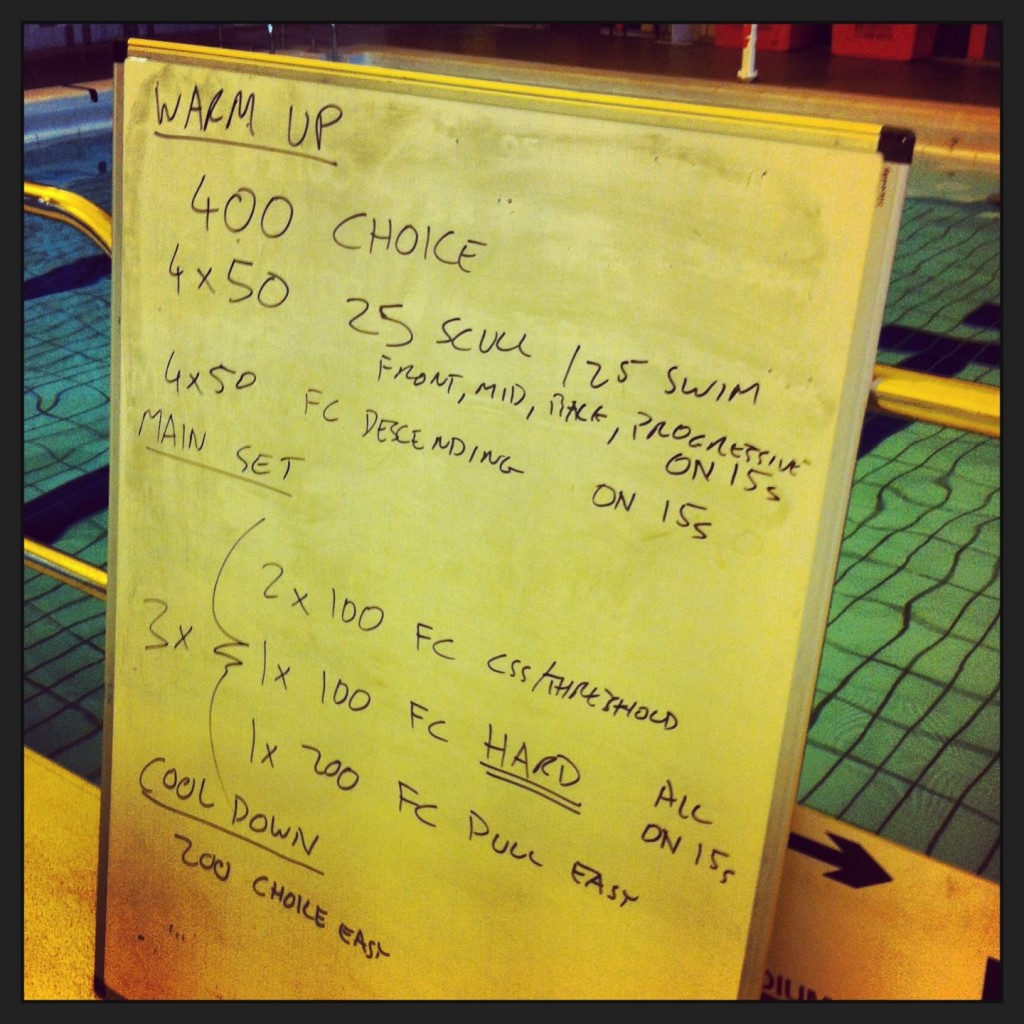 WARM UP
400 CHOICE
4x50 25 SCULL /25 SWIM
FRONT, MID, BACK, PROGRESSIVE
ON 15s
4x50 FC DESCENDING ON 15s
MAIN SET
3x
2x 100 FC CSS/THRESHOLD
1x 100 FC HARD
1x 200 FC PULL EASY
ALL
ON 15s
COOL DOWN
200 CHOICE EASY